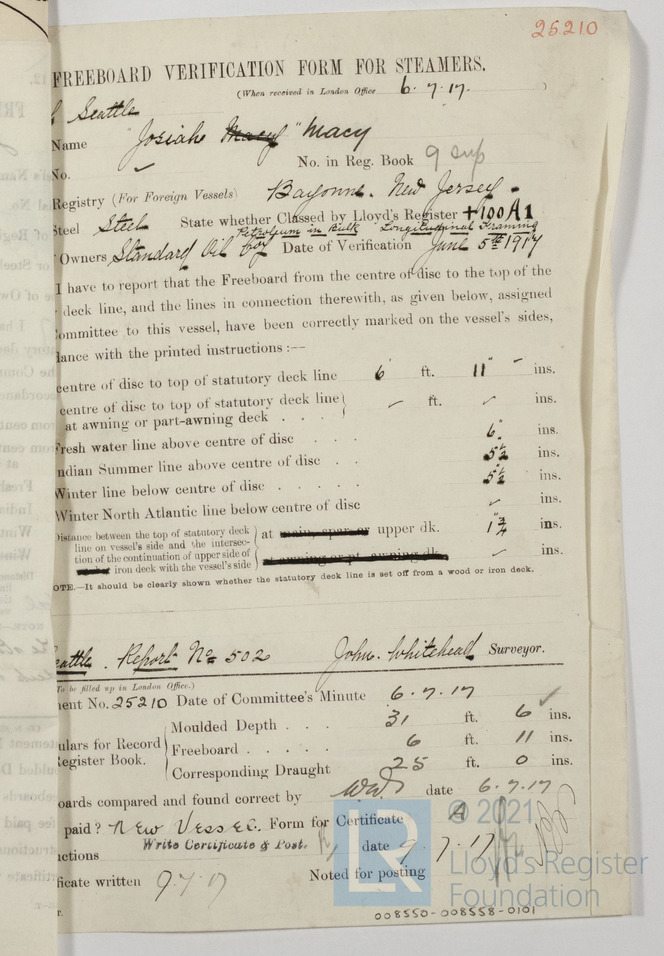 25210
FREEBOARD VERIFICATION FORM FOR STEAMERS.
(When received in London Office 6.7.17. )
Seattle
Name Josiah Macy " Macy
No. ✓ No. in Reg. Book 9 sup
Registry (For Foreign Vessels) Bayonne. New Jersey.
Steel Steel State whether Classed by Lloyd's Register +100A1
Petroleum in Bulk Longitudinal Framing
Owners Standard Oil Coy Date of Verification June 5th 1917
I have to report that the Freeboard from the centre of disc to the top of the
deck line, and the lines in connection therewith, as given below, assigned
Committee to this vessel, have been correctly marked on the vessel's sides,
dance with the printed instructions :—
centre of disc to top of statutory deck line 6 ft. 11" - ins.
centre of disc to top of statutory deck line
at awning or part-awning deck . . . ✓ ft. ✓ ins.
Fresh water line above centre of disc . . . 6" ins.
Indian Summer line above centre of disc . . 5½ ins.
Winter line below centre of disc . . . . . 5½ ins.
Winter North Atlantic line below centre of disc ✓ ins.
Distance between the top of statutory deck
line on vessel's side and the intersec-
tion of the continuation of upper side of
iron deck with the vessel's side
at main, spar or upper dk. 1¾" ins.
at awning or pt. awning dk. ✓ ins.
OTE.—It should be clearly shown whether the statutory deck line is set off from a wood or iron deck.
eattle. Report No 502 John. Whitehead Surveyor.
(To be filled up in London Office.)
ment No. 25210 Date of Committee's Minute 6.7.17
ulars for Record
Register Book.
Moulded Depth . . . 31 ft. 6 ins. ✓
Freeboard . . . . . 6 ft. 11 ins.
Corresponding Draught 25 ft. 0 ins.
oards compared and found correct by date 6.7.17
paid? New Vessel. Form for Certificate A
Write Certificate & Post.
uctions date 9.7.17
ficate written 9.7.17 Noted for posting
r.
LR
© 2021
Lloyd's Register
Foundation
008550-008558-0101